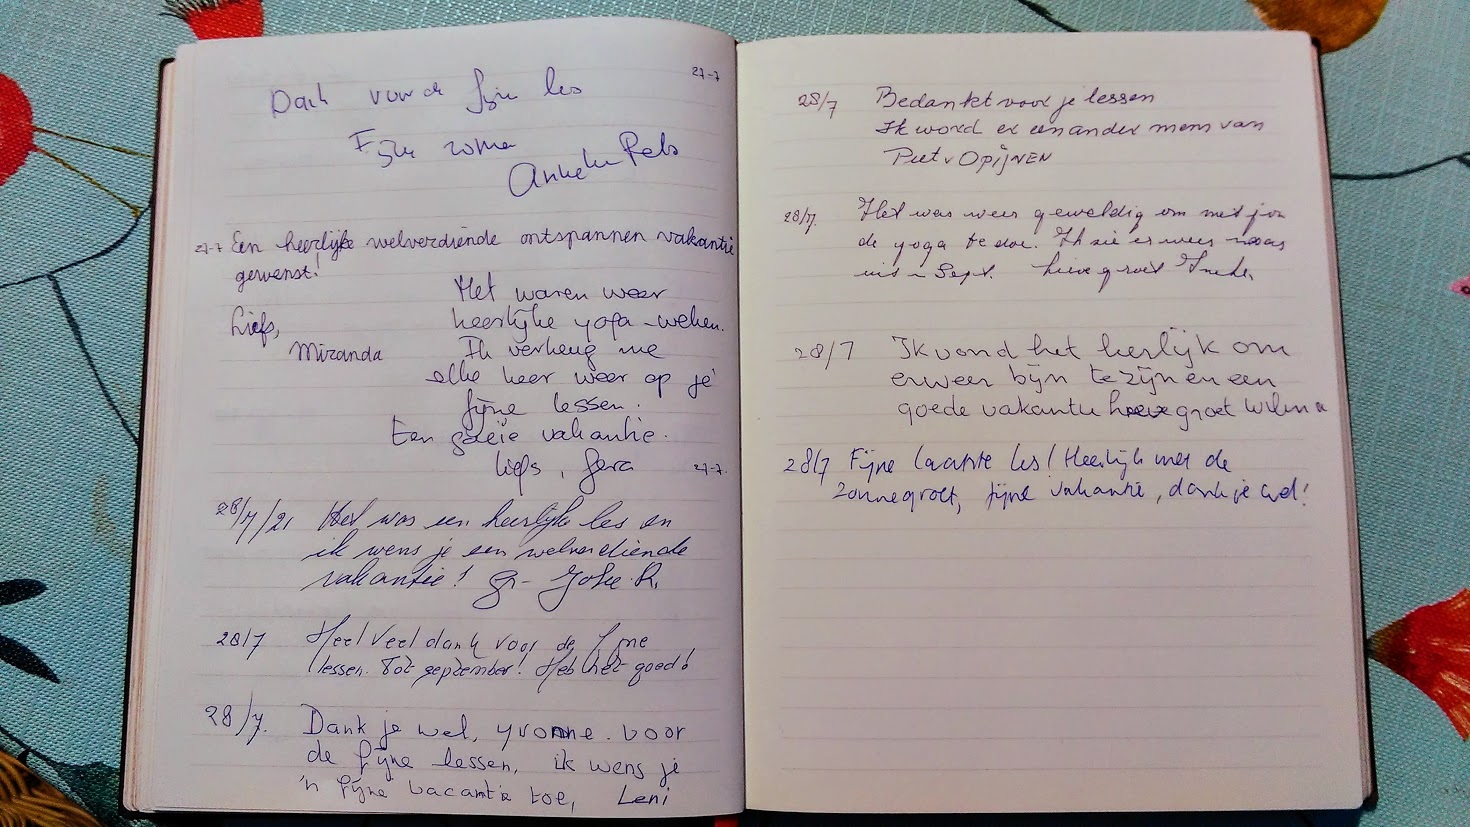 27-7
Dank voor de fijne les
Fijne zomer
Anneke
27-7 Een heerlijke welverdiende ontspannen vakantie
gewenst!
Liefs,
Miranda
Het waren weer
heerlijke yoga-weken.
Ik verheug me
elke keer weer op je
fijne lessen.
Een goeie vakantie.
liefs, Gera 27-7.
28/7/21 Het was een heerlijke les en
ik wens je een welverdiende
vakantie! Gr- Joke R.
28/7 Heel veel dank voor de fijne
lessen. Tot september! Heb het goed!
28/7. Dank je wel, Yvonne. voor
de fijne lessen, ik wens je
'n fijne vacantie toe, Leni
28/7 Bedankt voor je lessen
Ik word er een ander mens van
Piet v OPIJNEN
28/7. Het was weer geweldig om met jou
de yoga te doe. Ik zie er weer naar
uit in Sept. lieve groet
28/7 Ik vond het heerlijk om
er weer bijn te zijn en een
goede vakantie lieve groet Wilma
28/7 Fijne laatste les! Heerlijk met de
zonnegroet, fijne vakantie, dank je wel!